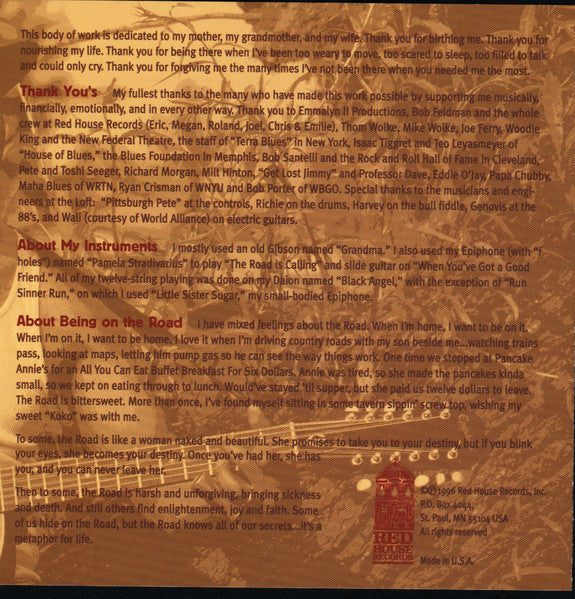 This body of work is dedicated to my mother, my grandmother, and my wife. Thank you for birthing me. Thank you for
nourishing my life. Thank you for being there when I've been too weary to move, too scared to sleep, too filled to talk
and could only cry. Thank you for forgiving me the many times I've not been there when you needed me the most.
Thank You's My fullest thanks to the many who have made this work possible by supporting me musically,
financially, emotionally, and in every other way. Thank you to Emmalyn II Productions, Bob Feldman and the whole
crew at Red House Records (Eric, Megan, Roland, Joel, Chris & Emilie), Thom Wolke, Mike Wolke, Joe Ferry, Woodie
King and the New Federal Theatre, the staff of "Terra Blues" in New York, Isaac Tiggret and Teo Leyasmeyer of
"House of Blues," the Blues Foundation in Memphis, Bob Santelli and the Rock and Roll Hall of Fame in Cleveland,
Pete and Toshi Seeger, Richard Morgan, Milt Hinton, "Get Lost Jimmy" and Professor Dave, Eddie O'Jay, Papa Chubby,
Maha Blues of WRTN, Ryan Crisman of WNYU and Bob Porter of WBGO. Special thanks to the musicians and engi-
neers at the Loft: "Pittsburgh Pete" at the controls, Richie on the drums, Harvey on the bull fiddle, Genovis at the
88's, and Wali (courtesy of World Alliance) on electric guitars.
About My Instruments I mostly used an old Gibson named "Grandma." I also used my Epiphone (with "f
holes") named "Pamela Stradivarius" to play "The Road is Calling" and slide guitar on "When You've Got a Good
Friend." All of my twelve-string playing was done on my Daion named "Black Angel," with the exception of "Run
Sinner Run," on which I used "Little Sister Sugar," my small-bodied Epiphone.
About Being on the Road I have mixed feelings about the Road. When I'm home, I want to be on it.
When I'm on it, I want to be home. I love it when I'm driving country roads with my son beside me...watching trains
pass, looking at maps, letting him pump gas so he can see the way things work. One time we stopped at Pancake
Annie's for an All You Can Eat Buffet Breakfast For Six Dollars. Annie was tired, so she made the pancakes kinda
small, so we kept on eating through to lunch. Would've stayed 'til supper, but she paid us twelve dollars to leave.
The Road is bittersweet. More than once, I've found myself sitting in some tavern sippin' screw top, wishing my
sweet "Koko" was with me.
To some, the Road is like a woman naked and beautiful. She promises to take you to your destiny, but if you blink
your eyes, she becomes your destiny. Once you've had her, she has
you, and you can never leave her.
Then to some, the Road is harsh and unforgiving, bringing sickness
and death. And still others find enlightenment, joy and faith. Some
of us hide on the Road, but the Road knows all of our secrets...it's a
metaphor for life.
RED
HOUSE
RECORDS
©℗ 1996 Red House Records, Inc.
P.O. Box 4044,
St. Paul, MN 55104 USA
All rights reserved
Made in U.S.A.